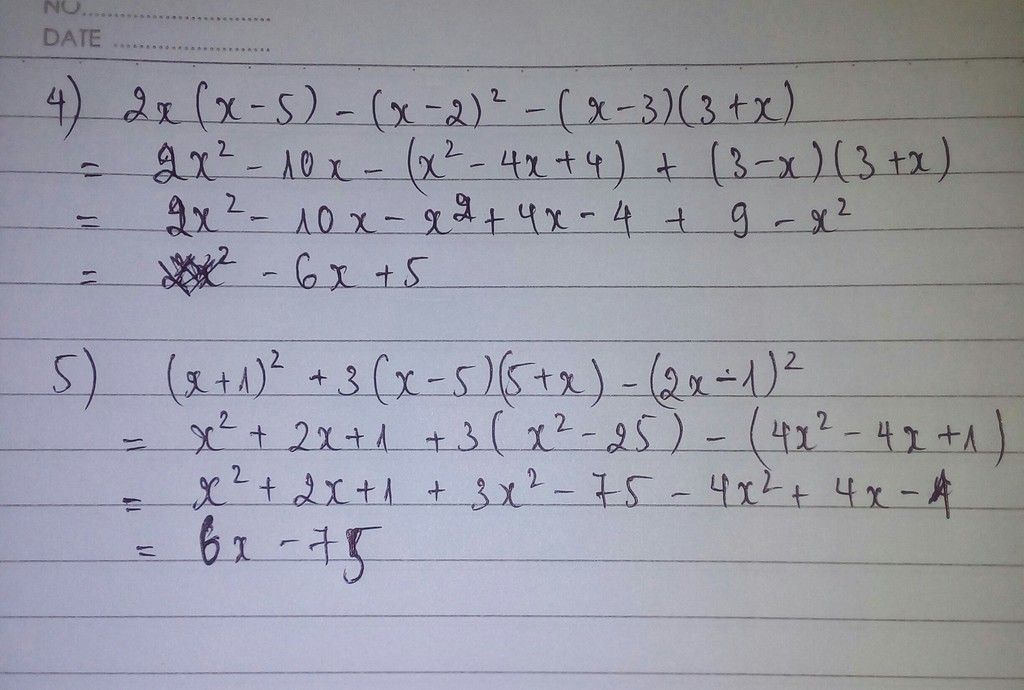 NO.
DATE
4) 2x(x-5) - (x-2)² - (x-3)(3+x)
= 2x² - 10x - (x² - 4x + 4) + (3-x)(3+x)
= 2x² - 10x - x² + 4x - 4 + 9 - x²
= - 6x + 5
5) (x+1)² + 3(x-5)(5+x) - (2x-1)²
= x² + 2x + 1 + 3(x² - 25) - (4x² - 4x + 1)
= x² + 2x + 1 + 3x² - 75 - 4x² + 4x - 1
= 6x - 75